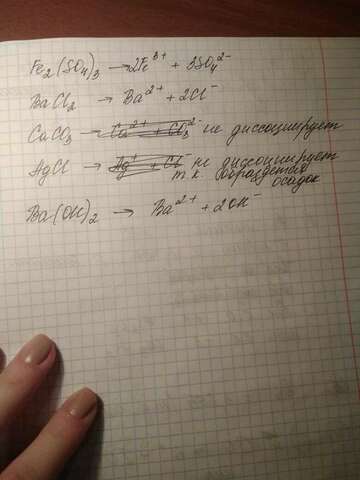 Fe₂(SO₄)₃ → 2Fe³⁺ + 3SO₄²⁻
BaCl₂ → Ba²⁺ + 2Cl⁻
CaCO₃ → не диссоциирует
AgCl → Ag⁺ + Cl⁻ не диссоциирует
т к образдется
осадок
Ba(OH)₂ → Ba²⁺ + 2OH⁻